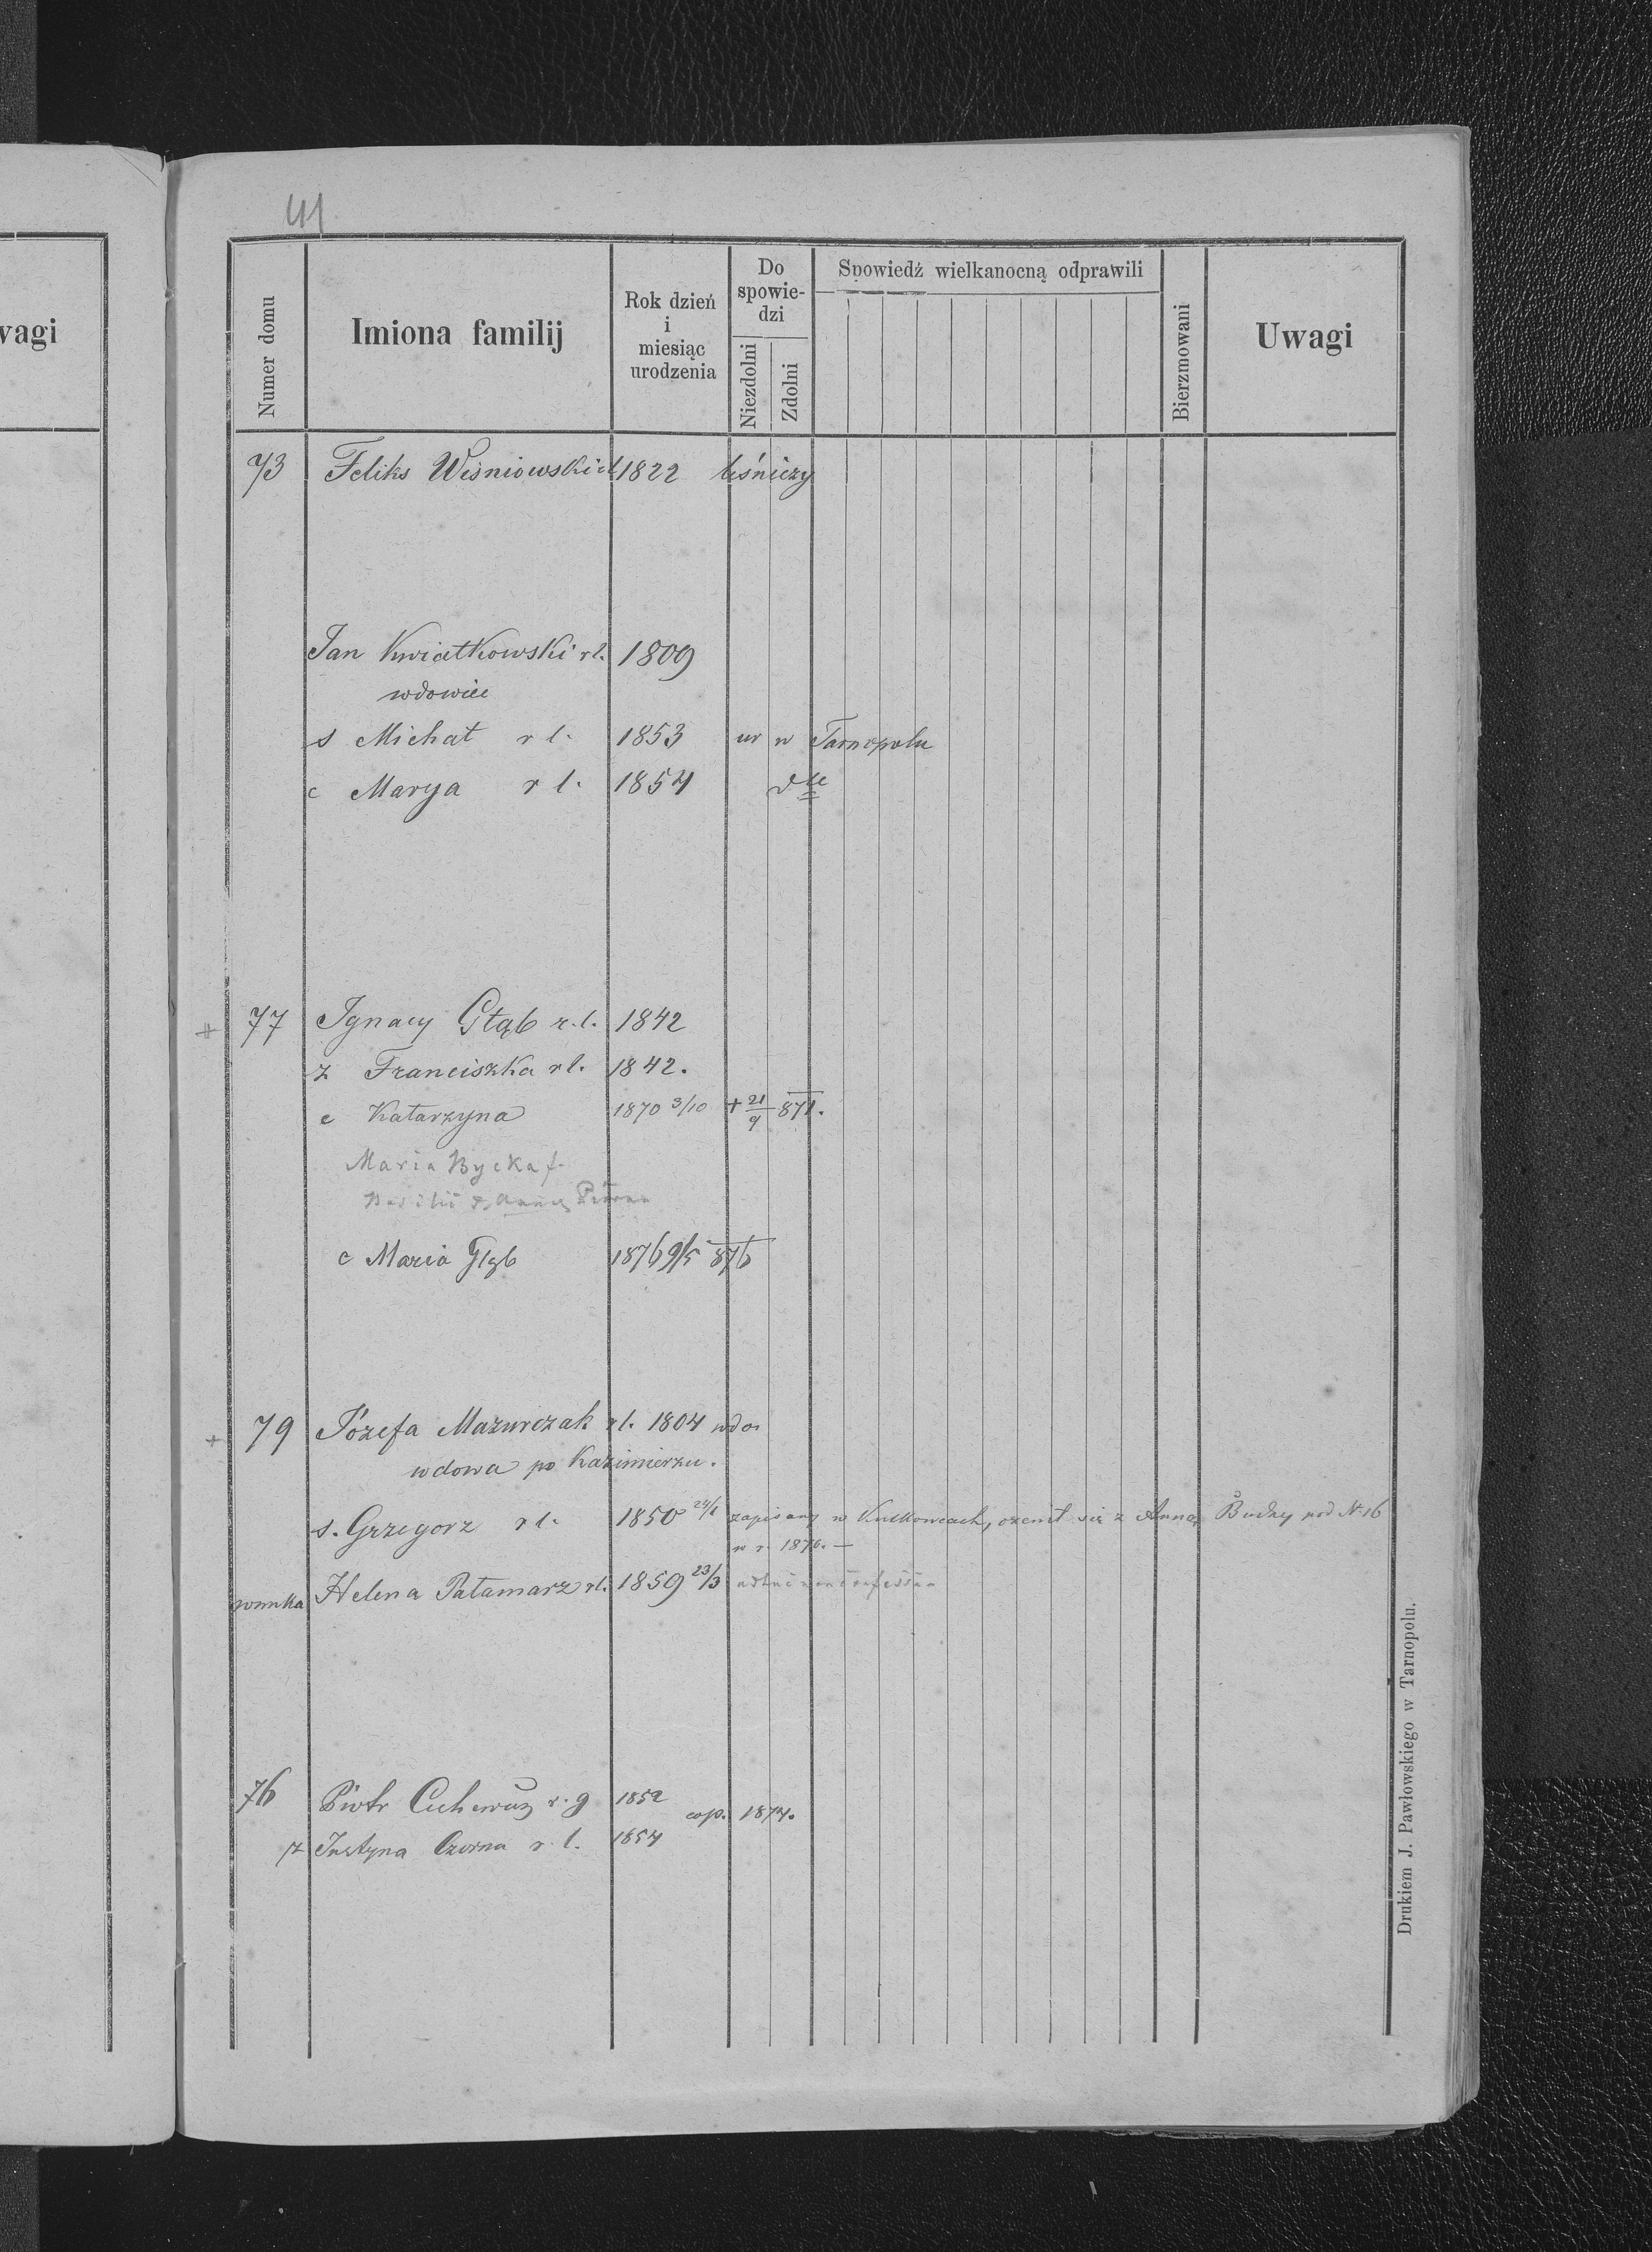 41
wagi
Numer domu
Imiona familij
Rok dzień
i
miesiąc
urodzenia
Do
spowie-
dzi
Niezdolni
Zdolni
Spowiedź wielkanocną odprawili
Bierzmowani
Uwagi
73 Feliks Wiśniowski rl 1822 leśniczy
Jan Kwiatkowski rl. 1809
wdowiec
s Michał rl. 1853 ur w Tarnopolu
c Marya rl. 1854 dtto
+ 77 Ignacy Głąb r.l. 1842
ż Franciszka rl. 1842.
c Katarzyna 1870 3/10 + 21/9 871.
Maria Bycka f.
Basilii & Annae
c Maria Głąb 1876 9/5 876
+ 79 Józefa Mazurczak rl. 1804 wdo
wdowa po Kazimierzu.
s. Grzegorz rl. 1850 24/1 zapisany w Kutkowcach, ożenił się z Anną Budny pod N. 16
w r. 1876. —
wnuka Helena Pałamarz rl. 1859 23/3
76 Piotr r. g 1852 cop. 1874.
ż Justyna Czorna r. l. 1854
Drukiem J. Pawłowskiego w Tarnopolu.